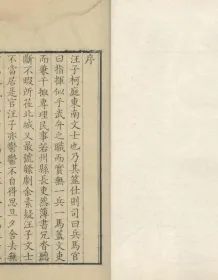 序
汪子柯庭東南文士也乃其簽仕則司曰兵馬官
曰指揮似乎武弁之職而實無一兵一馬蓋文吏
而兼干掫專理民事若州縣長吏然簿書冗沓聽
斷不暇所在北城又最號繁劇余素疑汪子文士
不當居是官汪子亦鬱鬱不自得思旦夕舍去無